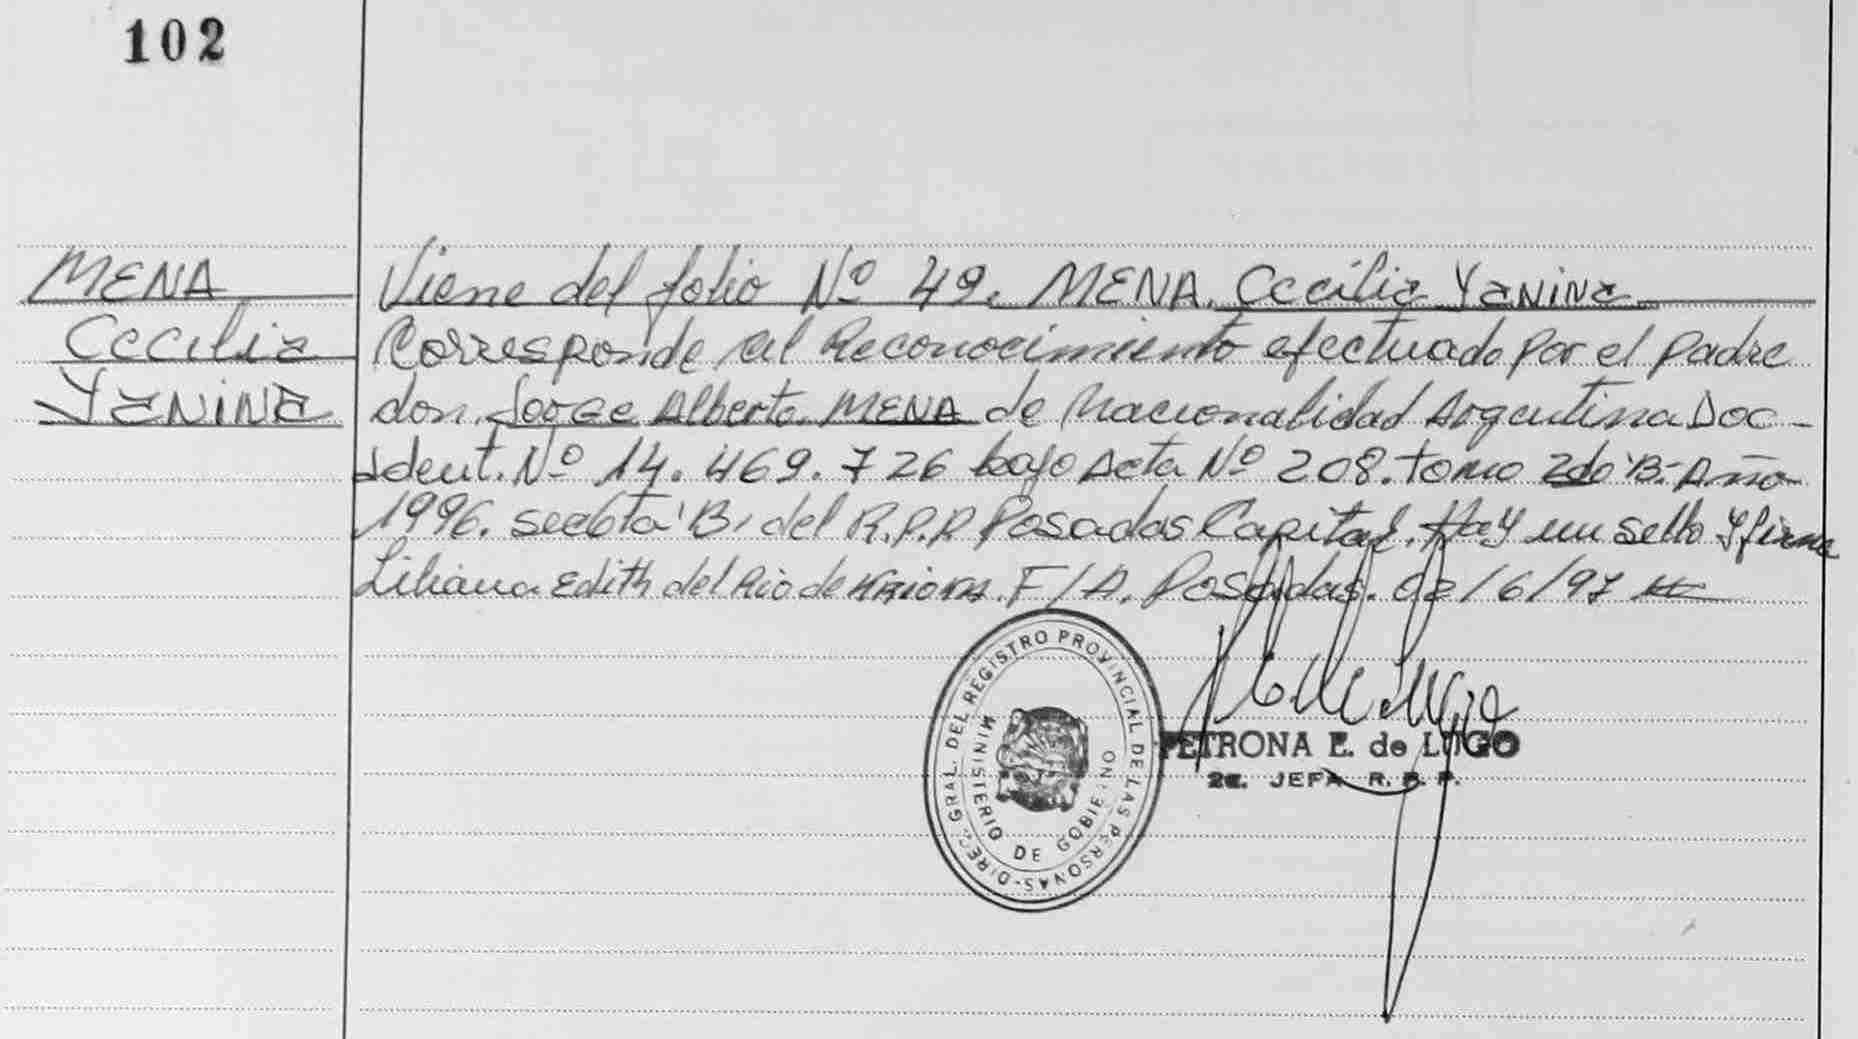 102
MENA
Cecilia
Yanina
Viene del folio Nº 49. MENA. Cecilia Yanina
Corresponde al Reconocimiento efectuado por el padre
don. Jorge Alberto. MENA de Nacionalidad Argentina Doc-
Ident. Nº 14.469.726 bajo Acta Nº 208. tomo 2do 'B'- Año
1996. secc 'B' del R.P.P Posadas Capital. Hay un sello y firma
Liliana Edith del Rio de F/A. Posadas. 02/6/97
DIREC. GRAL. DEL REGISTRO PROVINCIAL DE LAS PERSONAS-
MINISTERIO DE GOBIERNO
PETRONA E. de LUGO
2a. JEFA R. P. P.